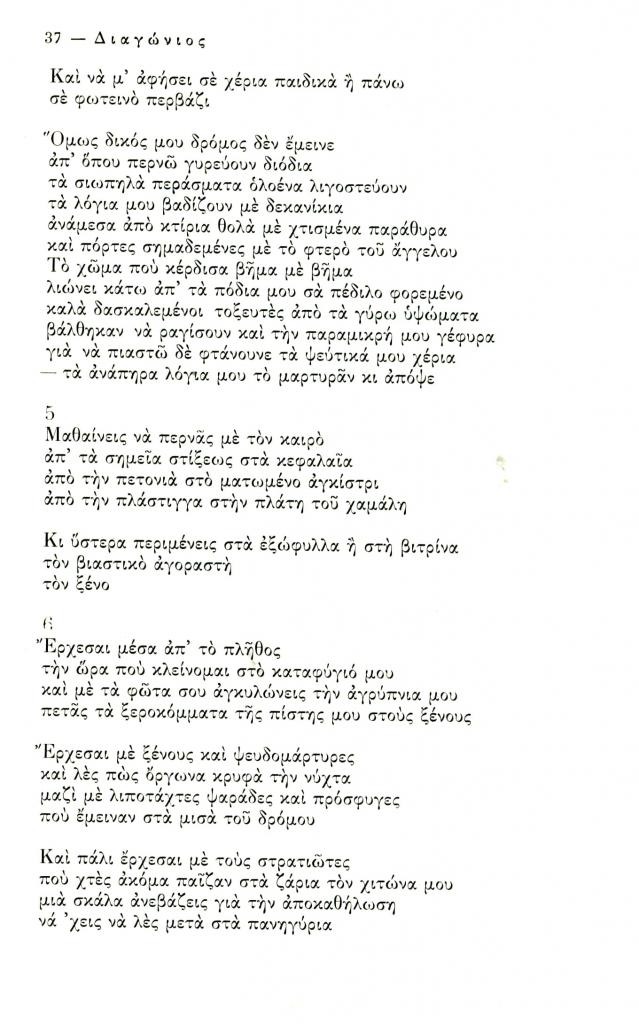 37 — Διαγώνιος
Καὶ νὰ μ' ἀφήσει σὲ χέρια παιδικὰ ἢ πάνω
σὲ φωτεινὸ περβάζι
Ὅμως δικός μου δρόμος δὲν ἔμεινε
ἀπ' ὅπου περνῶ γυρεύουν διόδια
τὰ σιωπηλὰ περάσματα ὁλοένα λιγοστεύουν
τὰ λόγια μου βαδίζουν μὲ δεκανίκια
ἀνάμεσα ἀπὸ κτίρια θολὰ μὲ χτισμένα παράθυρα
καὶ πόρτες σημαδεμένες μὲ τὸ φτερὸ τοῦ ἄγγελου
Τὸ χῶμα ποὺ κέρδισα βῆμα μὲ βῆμα
λιώνει κάτω ἀπ' τὰ πόδια μου σὰ πέδιλο φορεμένο
καλὰ δασκαλεμένοι τοξευτὲς ἀπὸ τὰ γύρω ὑψώματα
βάλθηκαν νὰ ραγίσουν καὶ τὴν παραμικρή μου γέφυρα
γιὰ νὰ πιαστῶ δὲ φτάνουνε τὰ ψεύτικά μου χέρια
— τὰ ἀνάπηρα λόγια μου τὸ μαρτυρᾶν κι ἀπόψε
5
Μαθαίνεις νὰ περνᾶς μὲ τὸν καιρὸ
ἀπ' τὰ σημεῖα στίξεως στὰ κεφαλαῖα
ἀπὸ τὴν πετονιὰ στὸ ματωμένο ἀγκίστρι
ἀπὸ τὴν πλάστιγγα στὴν πλάτη τοῦ χαμάλη
Κι ὕστερα περιμένεις στὰ ἐξώφυλλα ἢ στὴ βιτρίνα
τὸν βιαστικὸ ἀγοραστὴ
τὸν ξένο
6
Ἔρχεσαι μέσα ἀπ' τὸ πλῆθος
τὴν ὥρα ποὺ κλείνομαι στὸ καταφύγιό μου
καὶ μὲ τὰ φῶτα σου ἀγκυλώνεις τὴν ἀγρύπνια μου
πετᾶς τὰ ξεροκόμματα τῆς πίστης μου στοὺς ξένους
Ἔρχεσαι μὲ ξένους καὶ ψευδομάρτυρες
καὶ λὲς πὼς ὄργωνα κρυφὰ τὴν νύχτα
μαζὶ μὲ λιποτάχτες ψαράδες καὶ πρόσφυγες
ποὺ ἔμειναν στὰ μισὰ τοῦ δρόμου
Καὶ πάλι ἔρχεσαι μὲ τοὺς στρατιῶτες
ποὺ χτὲς ἀκόμα παῖζαν στὰ ζάρια τὸν χιτώνα μου
μιὰ σκάλα ἀνεβάζεις γιὰ τὴν ἀποκαθήλωση
νά 'χεις νὰ λὲς μετὰ στὰ πανηγύρια